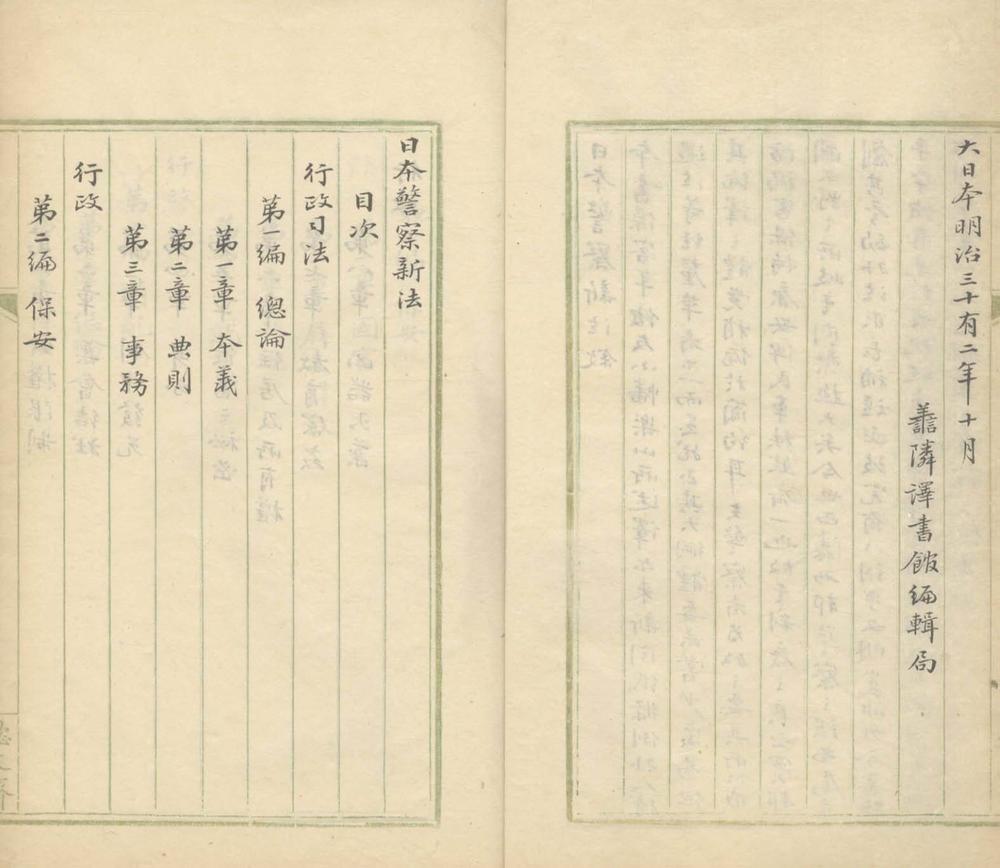 大日本明治三十有二年十月
譱隣譯書館編輯局
日本警察新法
目次
行政司法
第一編 總論
第一章 本義
第二章 典則
第三章 事務
行政
第二編 保安